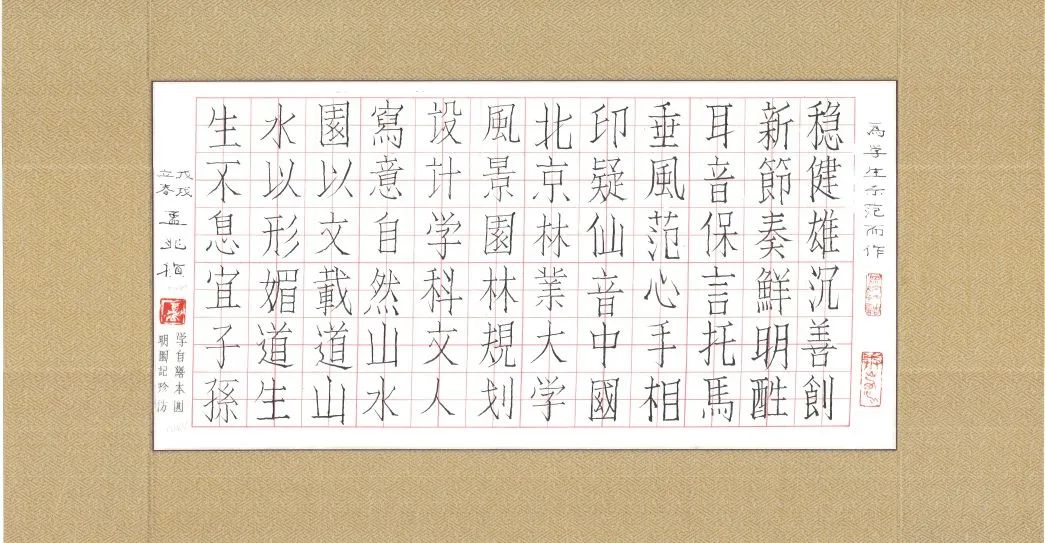 為学生示范而作
穏健雄沉善創
新節奏鮮明酣
耳音保言托馬
垂風范心手相
印疑仙音中國
北京林業大学
風景園林規划
设计学科文人
寫意自然山水
園以文載道山
水以形媚道生
生不息宜子孫
戊戌
立春
孟兆禎
学自繕本圓
明園記珍仿